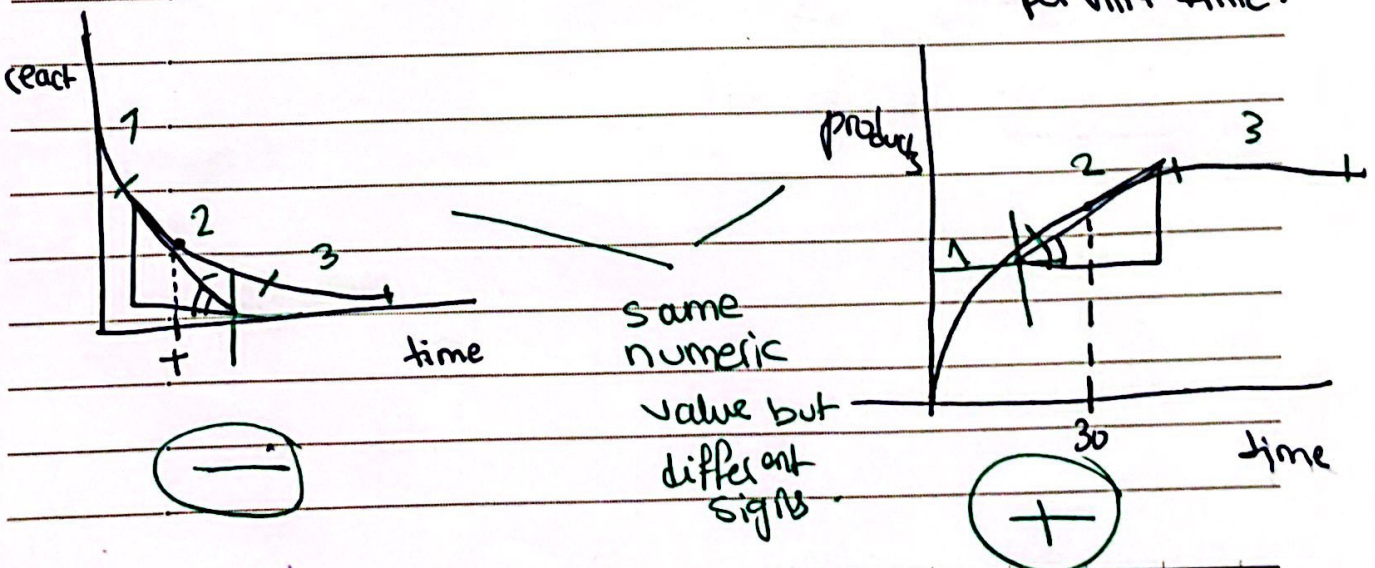 per unit time.
react
1
2
3
t
time
—
same
numeric
value but
different
signs.
products
1
2
3
30
time
+